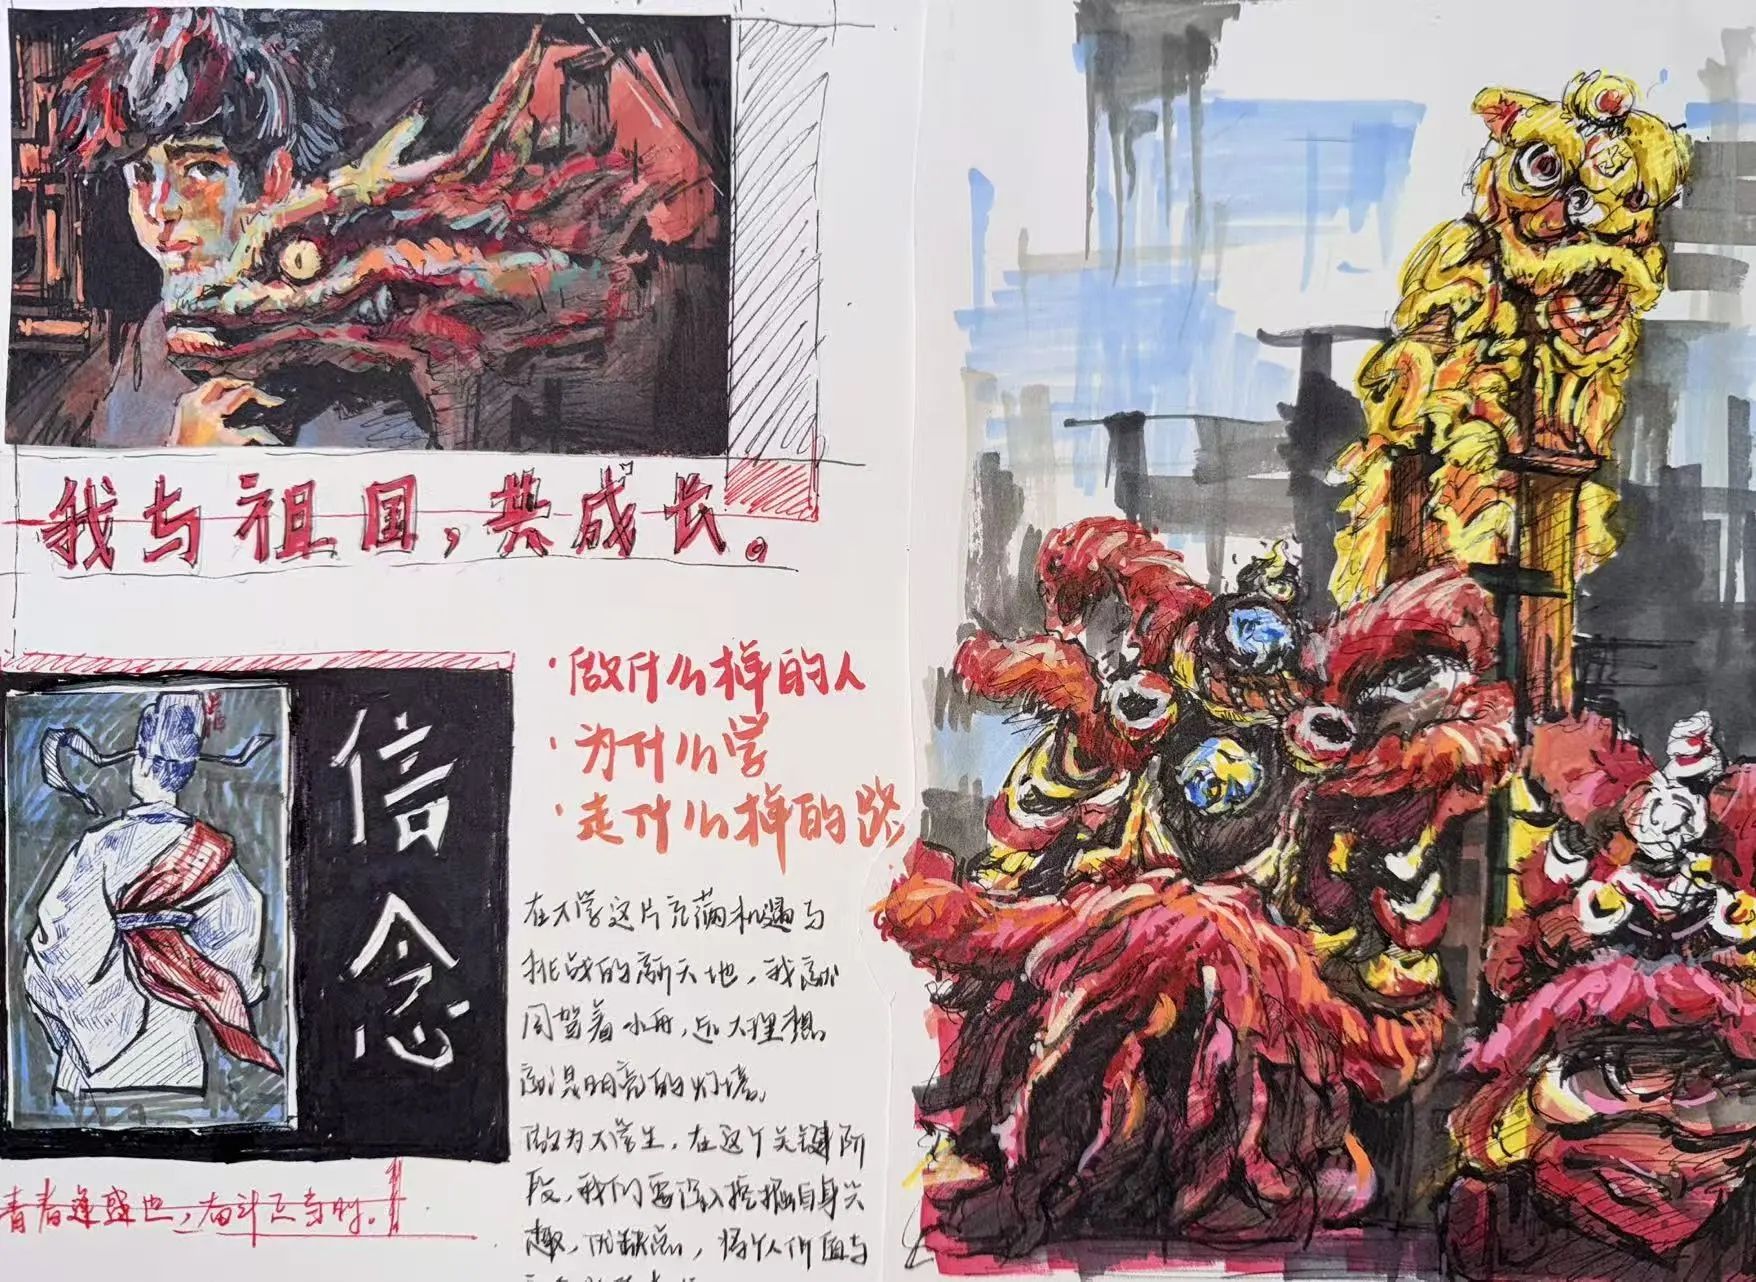 我与祖国，共成长。
信念
·做什么样的人
·为什么学
·走什么样的路
在大学这片充满机遇与
挑战的新天地，我们
同驾着小舟，近大理想
明亮的灯塔。
做为大学生，在这个关键阶
段，我们要深入挖掘自身兴
趣，优缺点，将个人价值与
青春逢盛世，奋斗正当时。